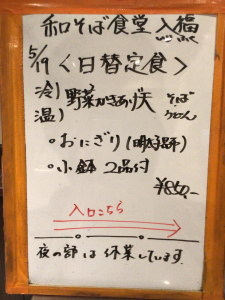 和そば食堂 入福
5/19 <日替定食>
冷) 野菜かきあげ天 そば
温) うどん
・おにぎり(明太子)
・小鉢 2品付
¥850-
入口こちら
夜の部は休業しています。